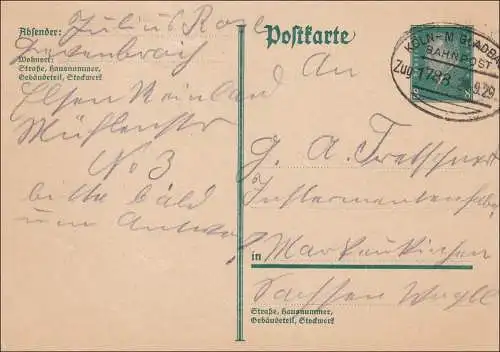 Absender: Julius Rose
Wohnort:
Straße, Hausnummer,
Gebäudeteil, Stockwerk
Elsen Reinland
Mühlenstr
No 3
bitte bald
um Antwort
Postkarte
KÖLN-M. GLADBA
BAHNPOST
Zug 1788
9.29
8
An
G. A.
in Markneukirchen
Sachsen
Straße, Hausnummer,
Gebäudeteil, Stockwerk